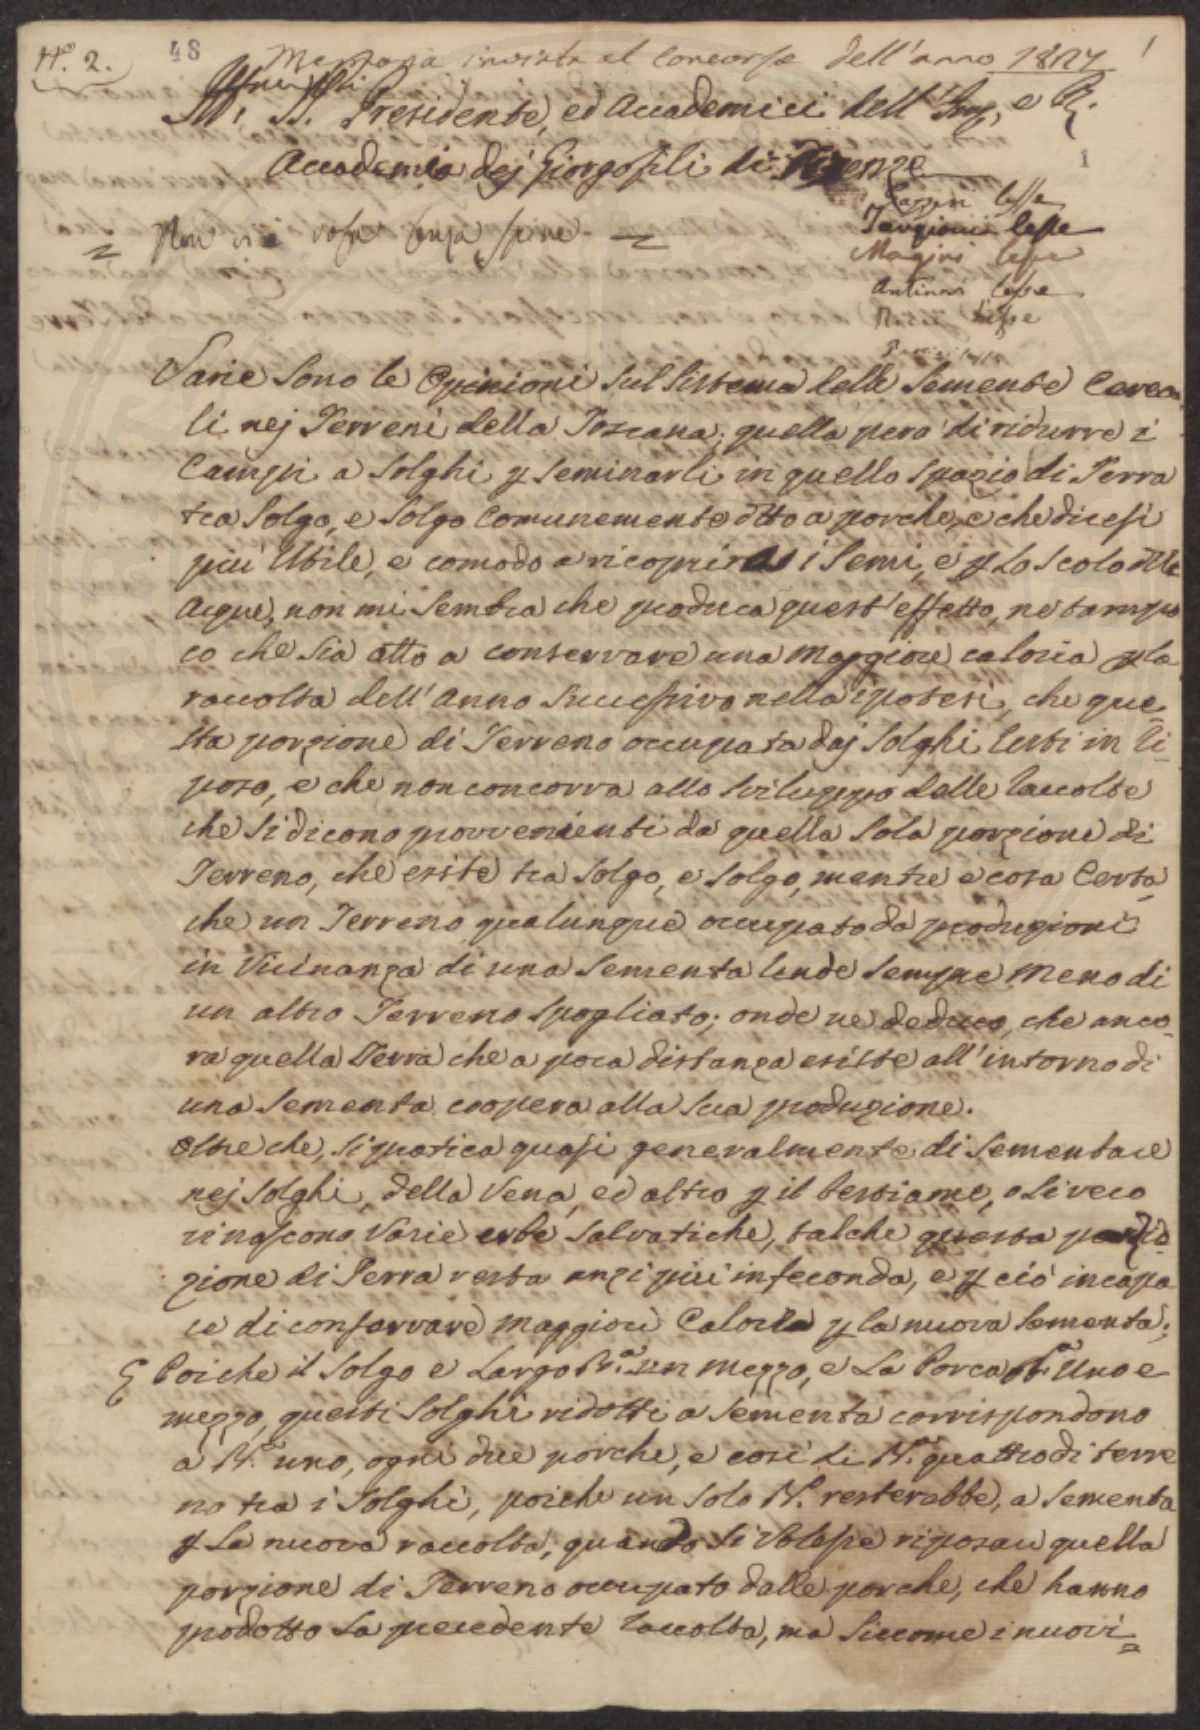 N.º 2. 48 Memoria inviata al Concorso dell'anno 1827 1
Ill.i SS. Presidente, ed Accademici dell' Imp. e R.
1
Accademia dej Giorgofili di Firenze
= Non vi è rosa senza spine =
Gazzeri lesse
Targioni lesse
Magini lesse
Antinori lesse
Ricci lesse
Varie sono le Opinioni sul Sistema delle Semente Cerea-
li nej Terreni della Toscana; quella però di ridurre i
Campi a Solghi p seminarli in quello spazio di Terra
tra Solgo, e Solgo Comunemente dtto a porche, e che dicesi
più Utile, e comodo a ricoprire i Semi, e p lo scolo dlle
Acque, non mi sembra che produca quest' effetto, ne tampo
co che sia atto a conservare una Maggiore caloria p la
raccolta dell' Anno Successivo nella ipotesi, che que-
sta porzione di Terreno occupata daj Solghi resti in ri-
poso, e che non concorra allo sviluppo delle raccolte
che si dicono provvenienti da quella sola porzione di
Terreno, che esiste tra Solgo, e Solgo, mentre è cosa Certa
che un Terreno qualunque occupato da produzioni
in Vicinanza di una Sementa rende sempre Meno di
un altro Terreno spogliato; onde ne deduco, che anco-
ra quella Terra che a poca distanza esiste all' intorno di
una Sementa coopera alla sua produzione.
Oltre che, si pratica quasi generalmente di Sementare
nej Solghi, della Vena, ed altro p il bestiame, o si vero
rinascono Varie erbe Salvatiche, talche questa
zione di Terra resta anzi più infeconda, e p ciò incapa
ce di conservare Maggiore Caloria p la nuova Sementa;
E Poiche il Solgo è Largo B.ª un Mezzo, e La Porca B.ª Uno e
mezzo, questi Solghi ridotti a Sementa corrispondono
a B.ª uno, ogni due porche, e così di B.ª quattro di terre
no tra i Solghi, poiche un solo B.º resterebbe, a Sementa
p La nuova raccolta; quando si Volesse riposare quella
porzione di Terreno occupato dalle porche, che hanno
prodotto La precedente raccolta, ma Siccome i nuovi=